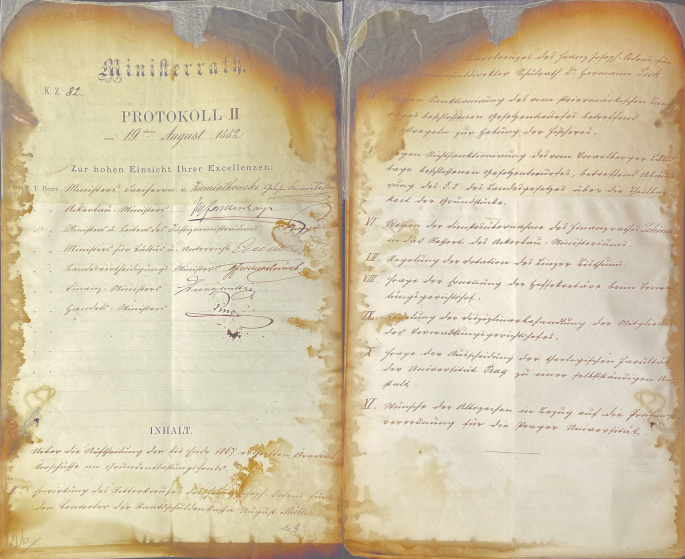 Ministerrath.
K. Z. 82.
PROTOKOLL II
vom 19ten August 1882
Zur hohen Einsicht Ihrer Excellenzen:
Des P. T. Herrn Ministers Freiherrn v. Ziemialkowski
Ackerbau-Ministers
" Ministers u. Leiters des Justizministeriums
" Ministers für Cultus u. Unterricht
" Landesvertheidigungs-Ministers
" Finanz-Ministers
" Handels-Ministers Pino
INHALT.
Ueber die Auftheilung der bis Ende 1867
Vorschüsse an Grundentlastungsfonds.
II. Erwirkung des Ritterkreuzes des Franz Joseph Ordens für
den Controlor der Staatsschuldenkasse August Müller
des Franz Joseph-Ordens für
Schulrath Dr. Hermann Pick
IV. wegen Sanktionirung des vom steiermärkischen Lan-
tage beschlossenen Gesetzentwurfes betreffend
Maßregeln zur Hebung der Fischerei.
V. wegen Nichtsanktionirung des vom Vorarlberger Land-
tage beschlossenen Gesetzentwurfes, betreffend Abände-
rung des §. 2 des Landesgesetzes über die Theilbar-
keit der Grundstücke.
VI. Wegen der Dienstesübernahme des Finanzrathes
in das Ressort des Ackerbau-Ministeriums.
VII. Regelung der Dotation des Linzer Bisthums.
VIII. Frage der Ernennung der Hofsekretäre beim Verwal-
tungsgerichtshof.
IX. der Disziplinarbehandlung der Mitglieder
des Verwaltungsgerichtshofes.
X. Frage der Ausscheidung der theologischen Facultät
der Universität Prag zu einer selbstständigen An-
stalt.
XI. Wünsche der Altczechen in Bezug auf die Prüfungs-
verordnung für die Prager Universität.